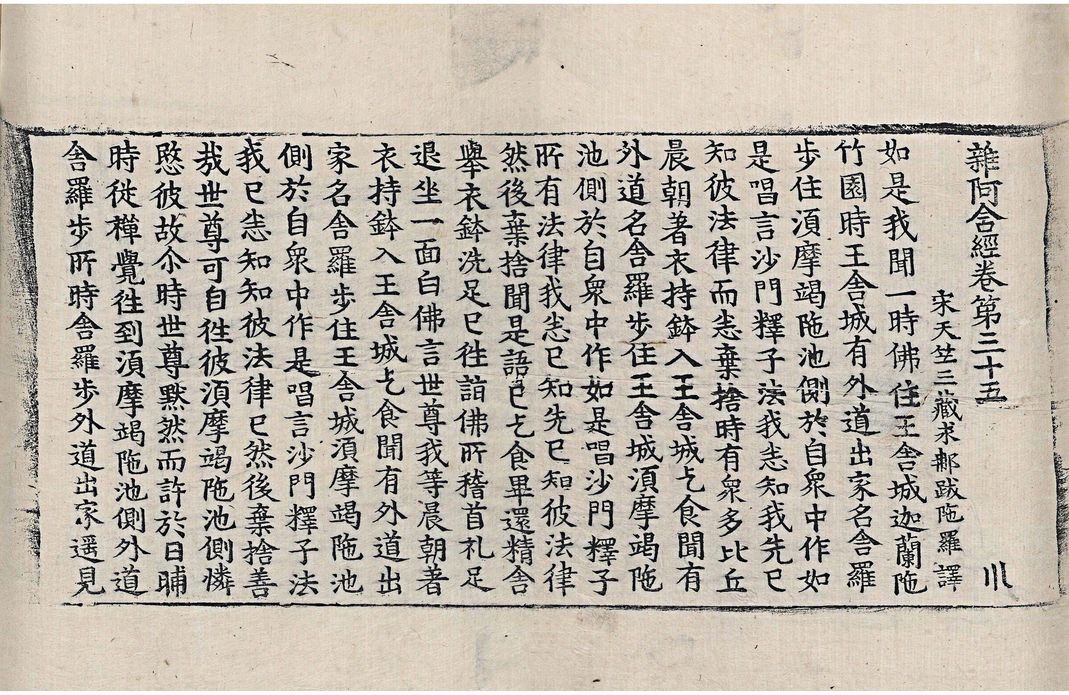 雜阿含經卷第三十五
宋天竺三藏求郍跋陁羅譯
川
如是我聞一時佛住王舍城迦蘭陁
竹園時王舍城有外道出家名舍羅
步住湏摩竭陁池側於自衆中作如
是唱言沙門釋子法我悉知我先已
知彼法律而悉棄捨時有衆多比丘
晨朝著衣持鉢入王舍城乞食聞有
外道名舍羅步住王舍城湏摩竭陁
池側於自衆中作如是唱沙門釋子
所有法律我悉已知先已知彼法律
然後棄捨聞是語已乞食畢還精舍
舉衣鉢洗足已往詣佛所稽首礼足
退坐一面白佛言世尊我等晨朝著
衣持鉢入王舍城乞食聞有外道出
家名舍羅步住王舍城湏摩竭陁池
側於自衆中作是唱言沙門釋子法
我已悉知知彼法律已然後棄捨善
哉世尊可自往彼湏摩竭陁池側憐
愍彼故尒時世尊默然而許於日晡
時從禪覺往到湏摩竭陁池側外道
舍羅步所時舍羅步外道出家遥見